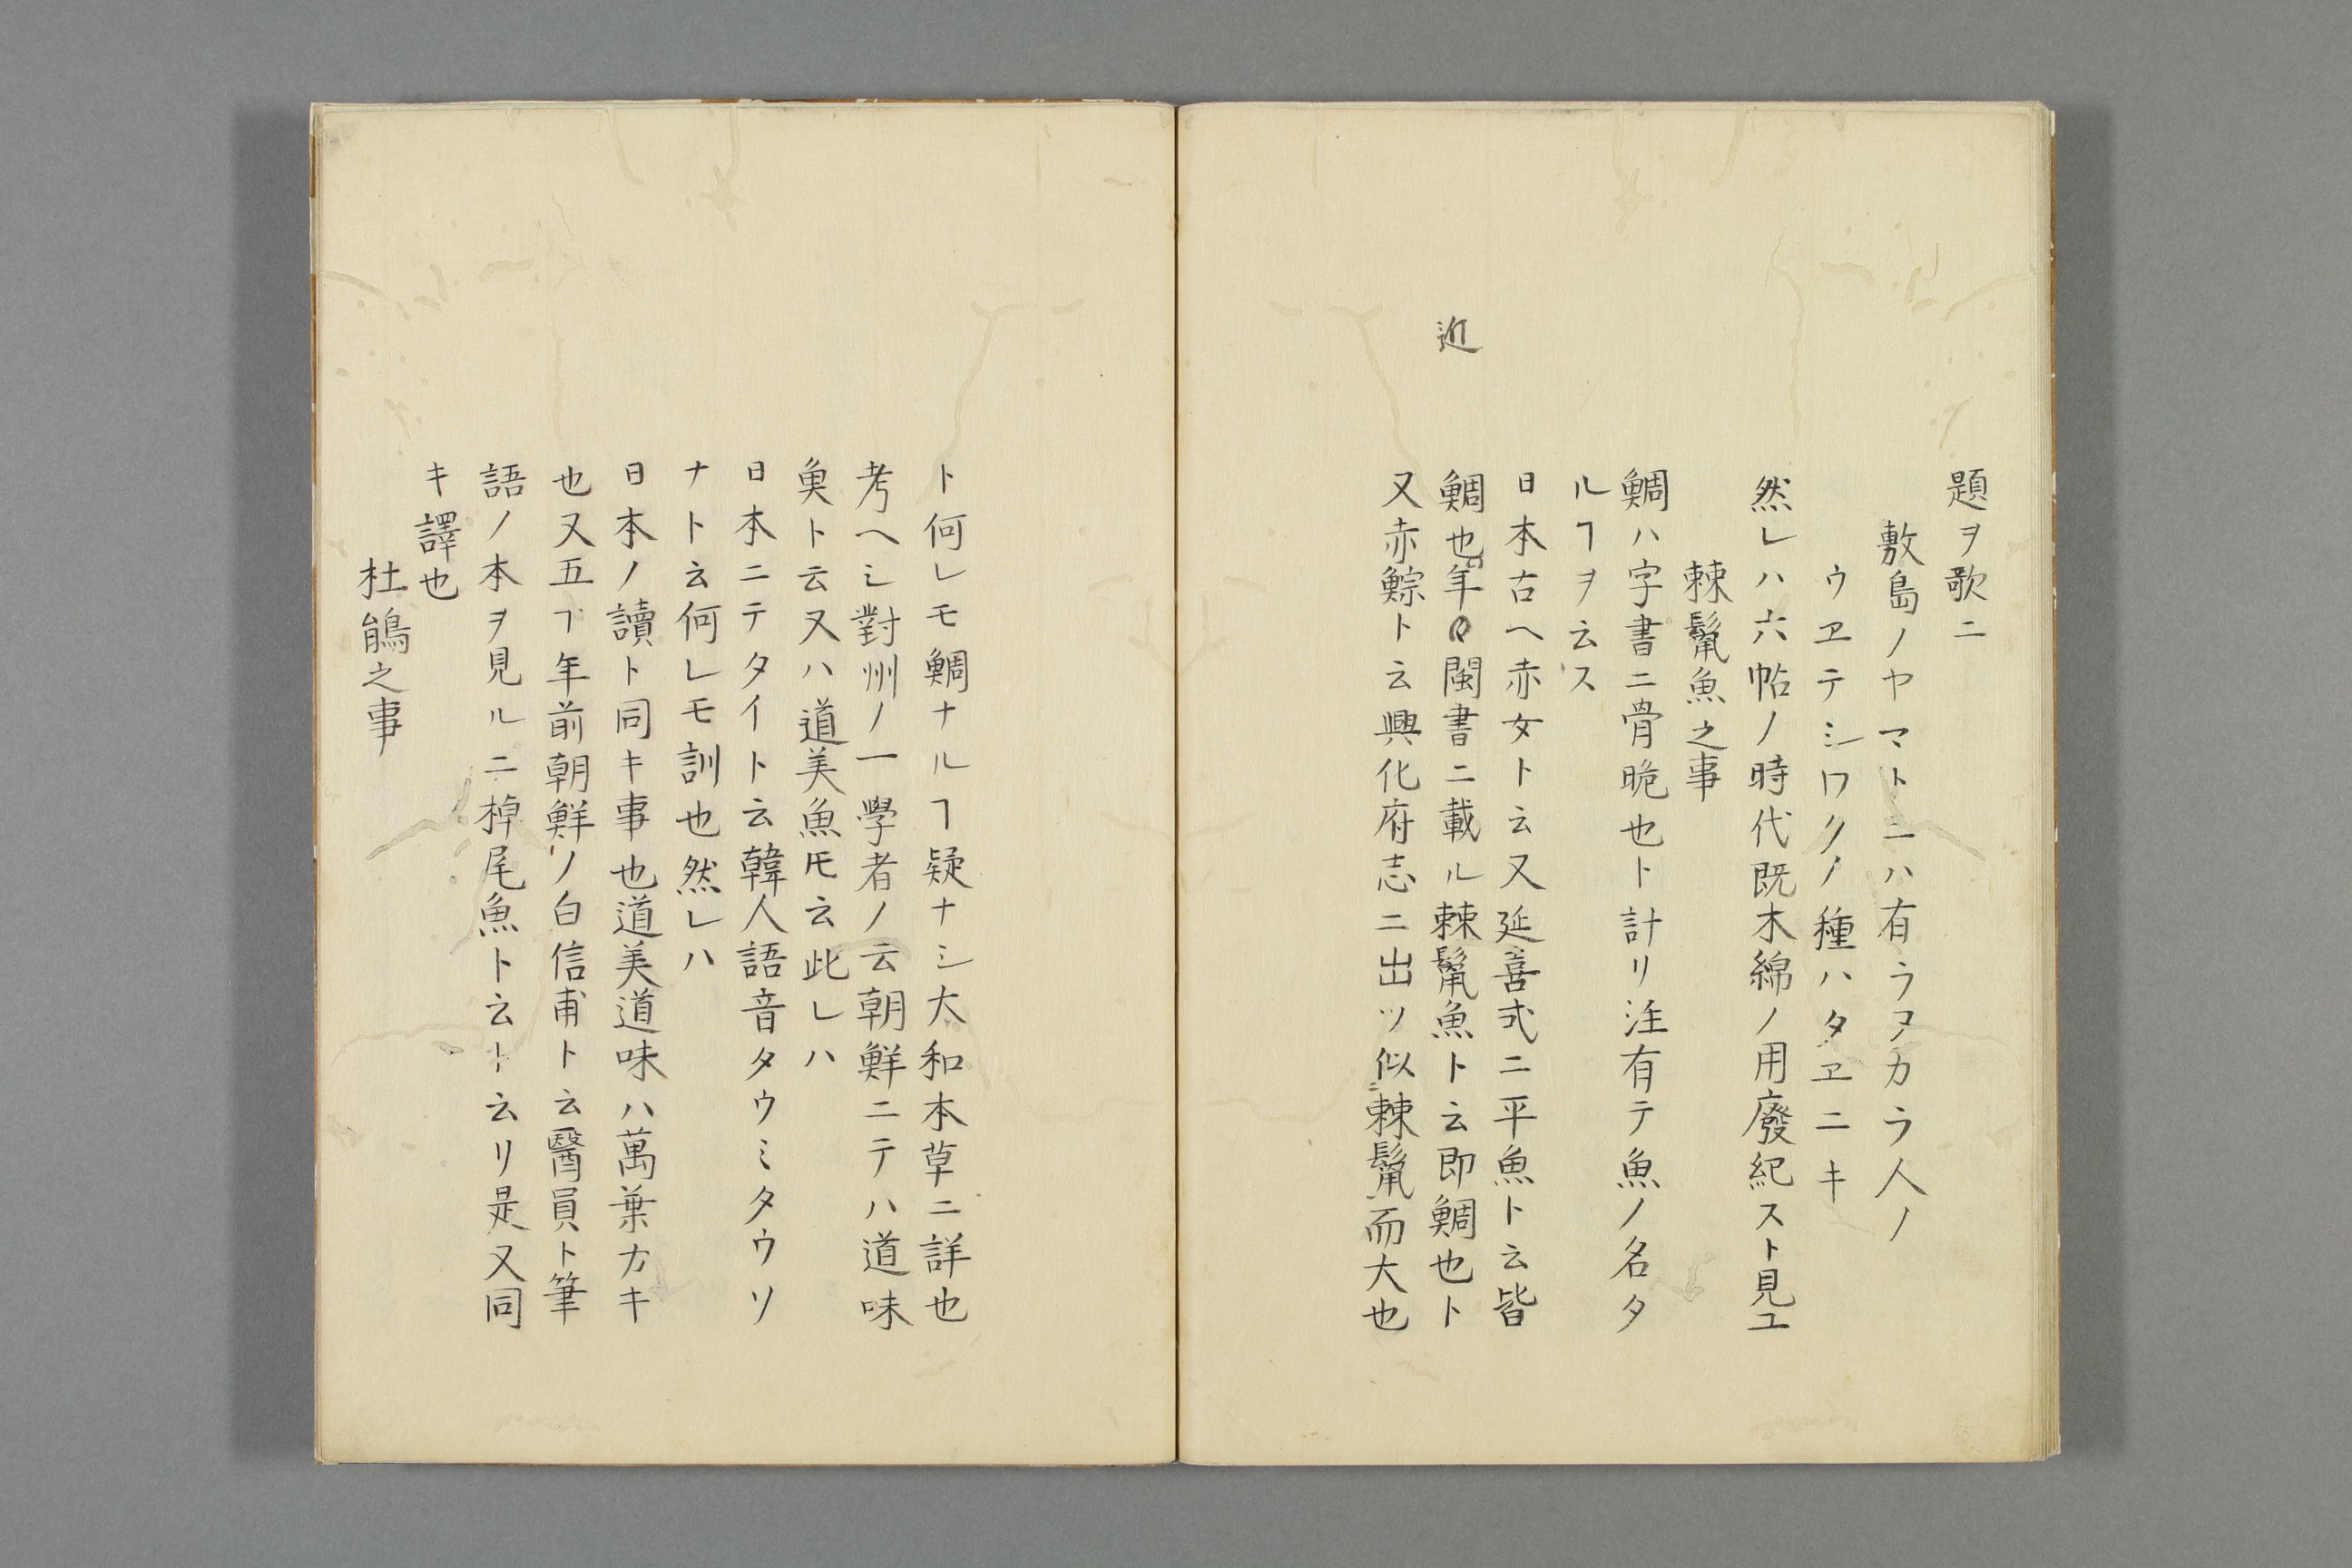 題ヲ歌ニ
敷島ノヤマトニハ有ラヌカラ人ノ
ウヱテシワタノ種ハタヱニキ
然レハ六帖ノ時代既木綿ノ用廢紀スト見エ
棘鬣魚之事
鯛ハ字書ニ骨脆也ト計リ注有テ魚ノ名タ
ルヿヲ云ス
日本古ヘ赤女ト云又延喜式ニ平魚ト云皆
近
鯛也年々閩書ニ載ル棘鬣魚ト云即鯛也ト
又赤鯮ト云興化府志ニ出ツ似ニ棘鬣而大也
ト何レモ鯛ナルヿ疑ナシ大和本草ニ詳也
考ヘシ對州ノ一學者ノ云朝鮮ニテハ道味
魚ト云又ハ道美魚トモ云此レハ
日本ニテタイト云韓人語音タウミタウソ
ナト云何レモ訓也然レハ
日本ノ讀ト同キ事也道美道味ハ萬葉カキ
也又五六年前朝鮮ノ白信甫ト云醫員ト筆
語ノ本ヲ見ルニ棹尾魚ト云ト云リ是又同
キ譯也
杜鵑之事